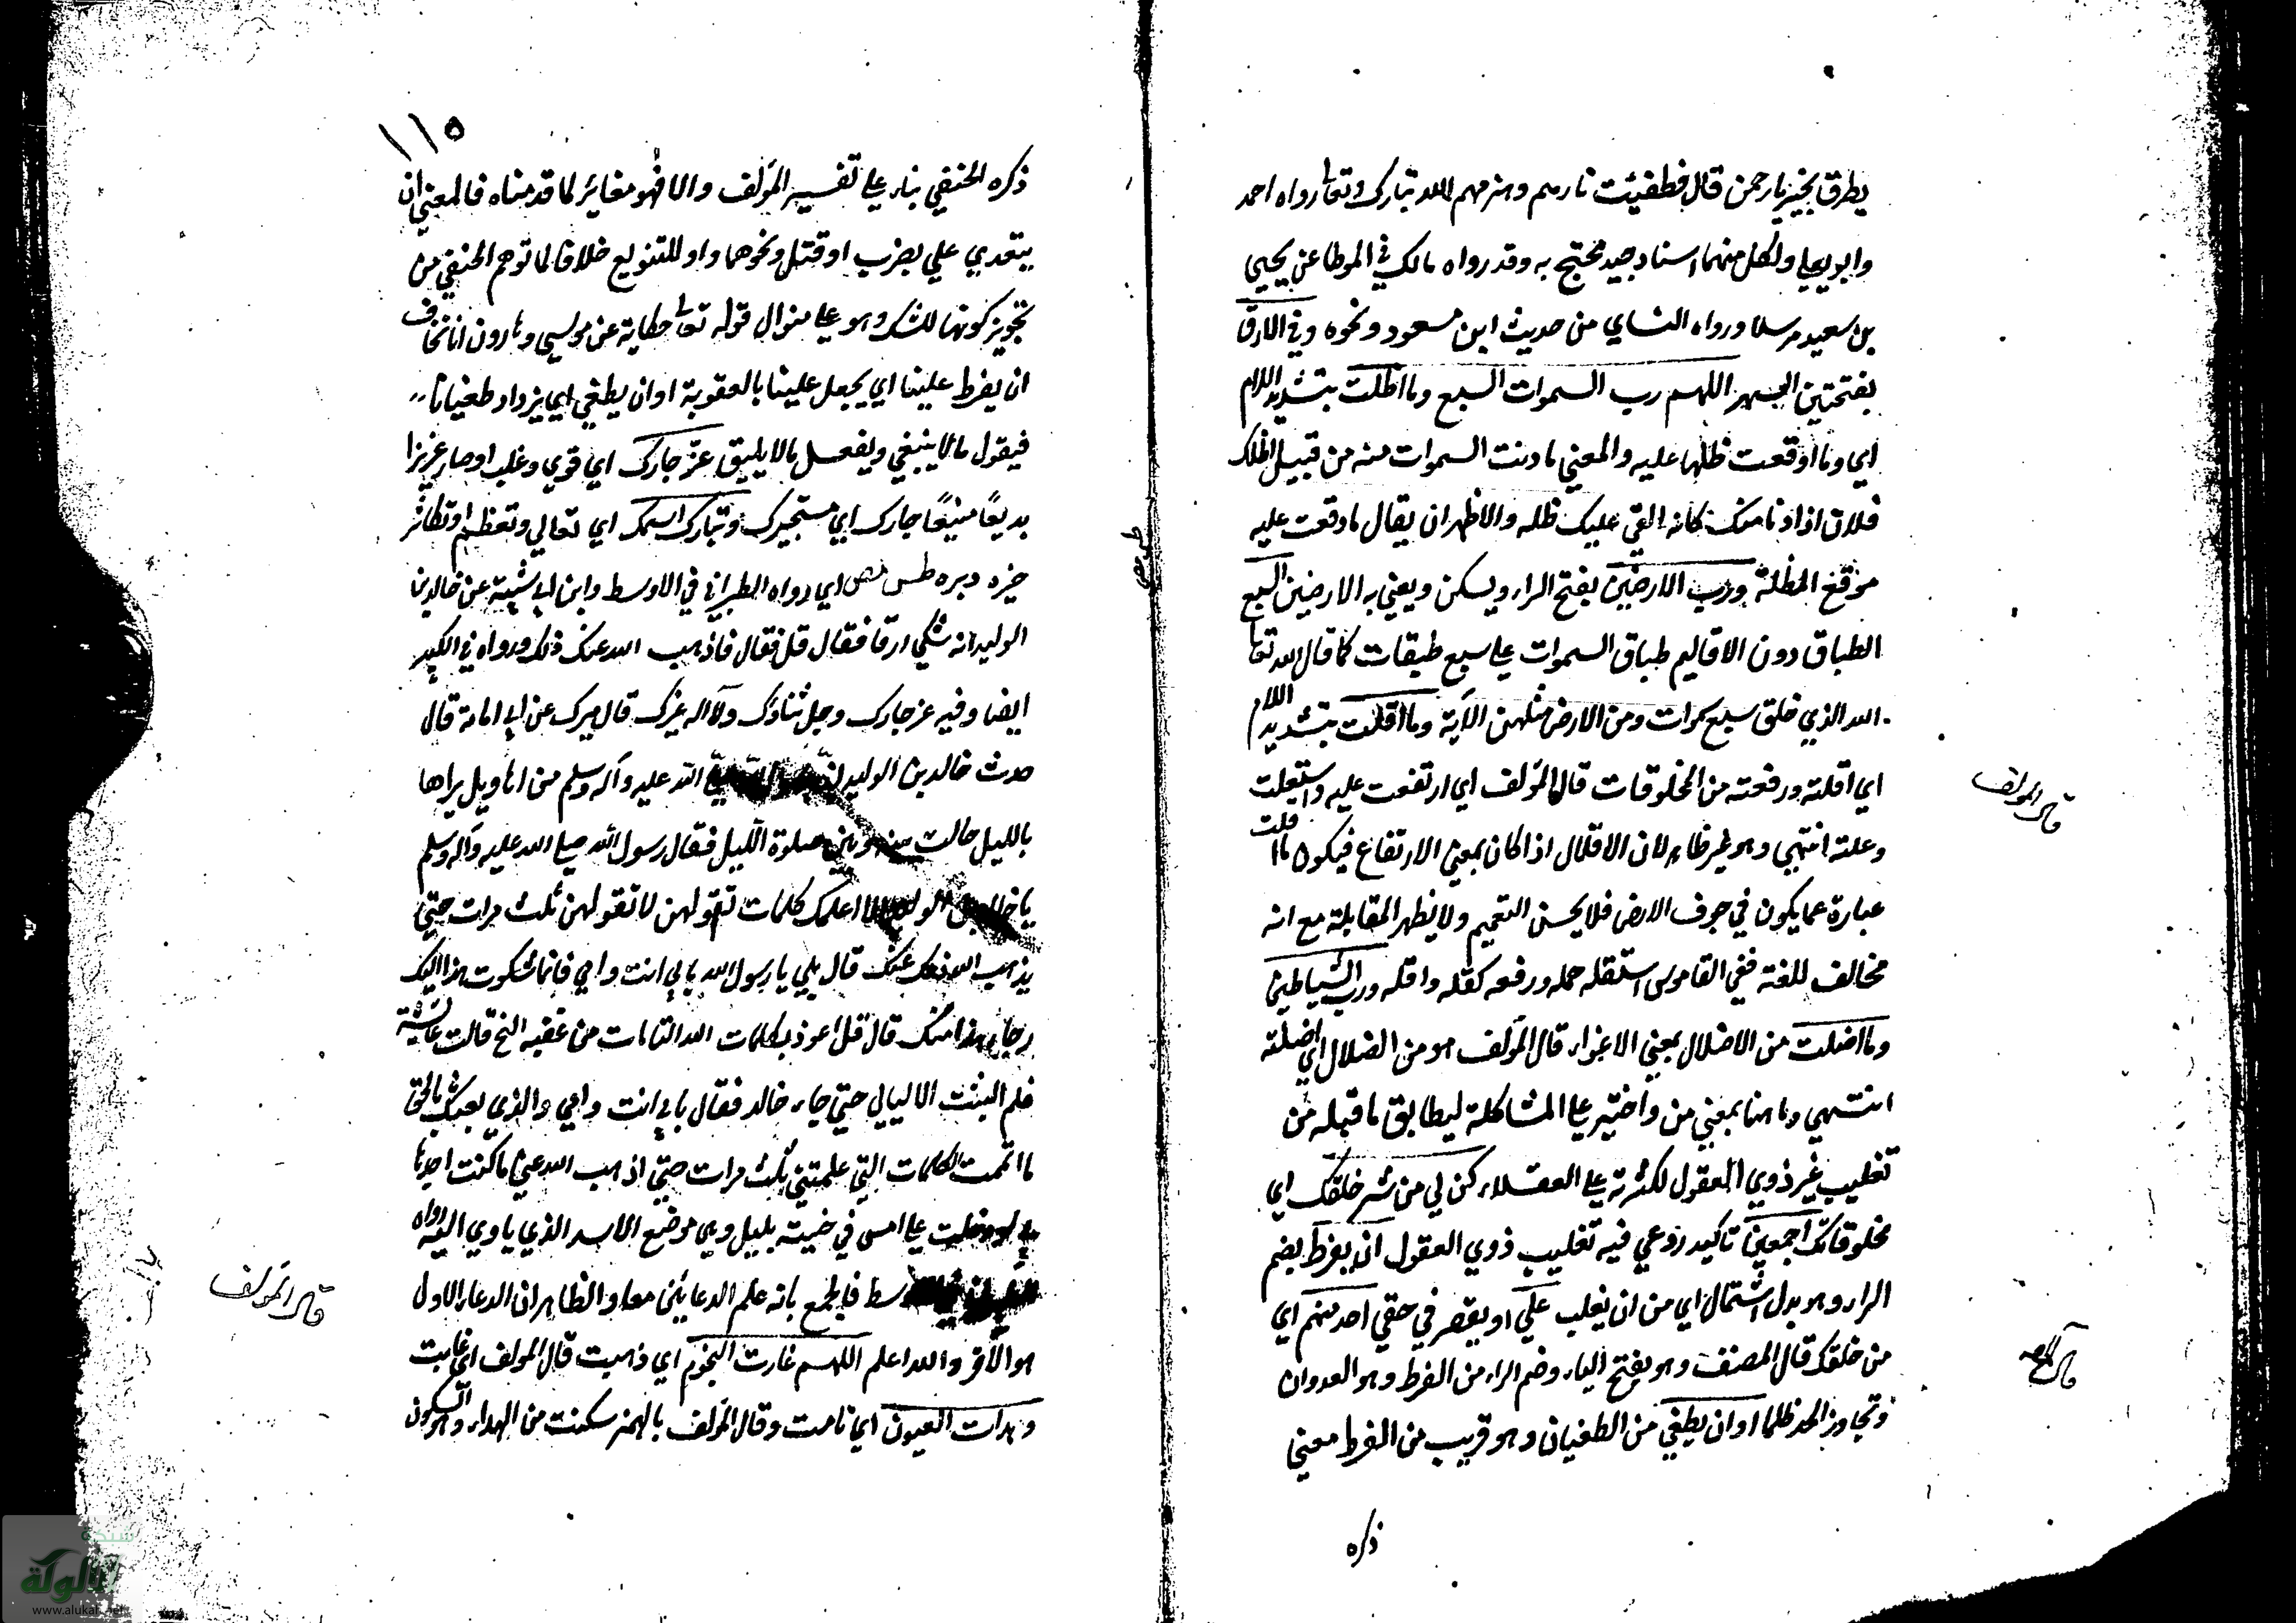 يطرق بخير يا رحمن قال فطفئت نارهم وهزمهم الله تبارك وتعالى رواه احمد
وابو يعلى ولكل منهما اسناد جيد محتج به وقد رواه مالك في الموطا عن يحيى
بن سعيد مرسلا ورواه النسائي من حديث ابن مسعود ونحوه وفي الارق
بفتحتين السهر اللهم رب السموات السبع وما اظلت بتشديد اللام
اي وما اوقعت ظلها عليه والمعنى ما دنت السموات منه من قبيل اظلك
فلان اذا دنا منك كانه القى عليك ظله والاظهر ان يقال ما وقعت عليه
موقع المظلة ورب الارضين بفتح الراء ويسكن ويعني به الارضين السبع
الطباق دون الاقاليم طباق السموات على سبع طبقات كما قال الله تعا
الله الذي خلق سبع سموات ومن الارض مثلهن الآية وما اقلت بتشديد اللام
اي اقلته ورفعته من المخلوقات قال المؤلف اي ارتفعت عليه واستعلت
وعلته انتهى وهو غير ظاهر لان الاقلال اذا كان بمعنى الارتفاع فيكون ما اقلت
عبارة عما يكون في جوف الارض فلا يحسن التعميم ولا يظهر المقابلة مع انه
مخالف للغة ففي القاموس استقله حمله ورفعه كقله واقله ورب الشياطين
وما اضلت من الاضلال بمعنى الاغواء قال المؤلف هو من الضلال اي اضلته
انتهى وما هنا بمعنى من واختير على المشاكلة ليطابق ما قبله من
تغليب غير ذوي العقول لكثرته على العقلاء كن لي من شر خلقك اي
مخلوقاتك اجمعين تاكيد روعي فيه تغليب ذوي العقول ان يفرط بضم
الراء وهو بدل اشتمال اي من ان يغلب علي او يقصر في حقي احد منهم اي
من خلقك قال المصنف وهو بفتح الياء وضم الراء من الفرط وهو العدوان
وتجاوز الحد ظلما او ان يطغى من الطغيان وهو قريب من الفرط معنى
ذكره
قال المؤلف
١١٥
ذكره الحنفي بناء على تفسير المؤلف والا فهو مغائر لما قدمناه فالمعنى ان
يتعدى علي بضرب او قتل ونحوهما واو للتنويع خلافا لما توهم الحنفي من
تجويز كونها للشك وهو على منوال قوله تعالى حكاية عن موسى وهارون اننا نخاف
ان يفرط علينا اي يعجل علينا بالعقوبة او ان يطغى اي يزداد طغيانا
فيقول ما لا ينبغي ويفعل ما لا يليق عز جارك اي قوي وغلب او صار عزيزا
بديعا منيعا جارك اي مستجيرك وتبارك اسمك اي تعالى وتعظم او تكاثر
خيره وبره طس مص اي رواه الطبراني في الاوسط وابن ابي شيبة عن خالد بن
الوليد انه شكى ارقا فقال قل فقال فاذهب الله عنك ذلك ورواه في الكبير
ايضا وفيه عز جارك وجل ثناؤك ولا اله غيرك قال ميرك عن ابي امامة قال
حدث خالد بن الوليد رسول الله صلى الله عليه وآله وسلم من اهاويل يراها
بالليل حالت بينه وبين صلوة الليل فقال رسول الله صلى الله عليه وآله وسلم
يا خالد بن الوليد الا اعلمك كلمات تقولهن لا تقولهن ثلث مرات حتى
يذهب الله ذلك عنك قال بلى يا رسول الله بابي انت وامي فانما شكوت هذا اليك
رجاء هذا منك قال قل اعوذ بكلمات الله التامات من غضبه الخ قالت عائشة
فلم البث الا ليالي حتى جاء خالد فقال بابي انت وامي والذي بعثك بالحق
ما اتممت الكلمات التي علمتني ثلث مرات حتى اذهب الله عني ما كنت اجد ما
لو دخلت على اسد في خيسته بليل وهي موضع الاسد الذي ياوي اليه رواه
الطبراني في الاوسط فالجمع بانه علم الدعائين معا والظاهر ان الدعاء الاول
هو الاقر والله اعلم اللهم غارت النجوم اي ذهبت قال المؤلف اي غابت
وهدات العيون اي نامت وقال المؤلف بالهمز سكنت من الهداء وهو السكون
قال المؤلف